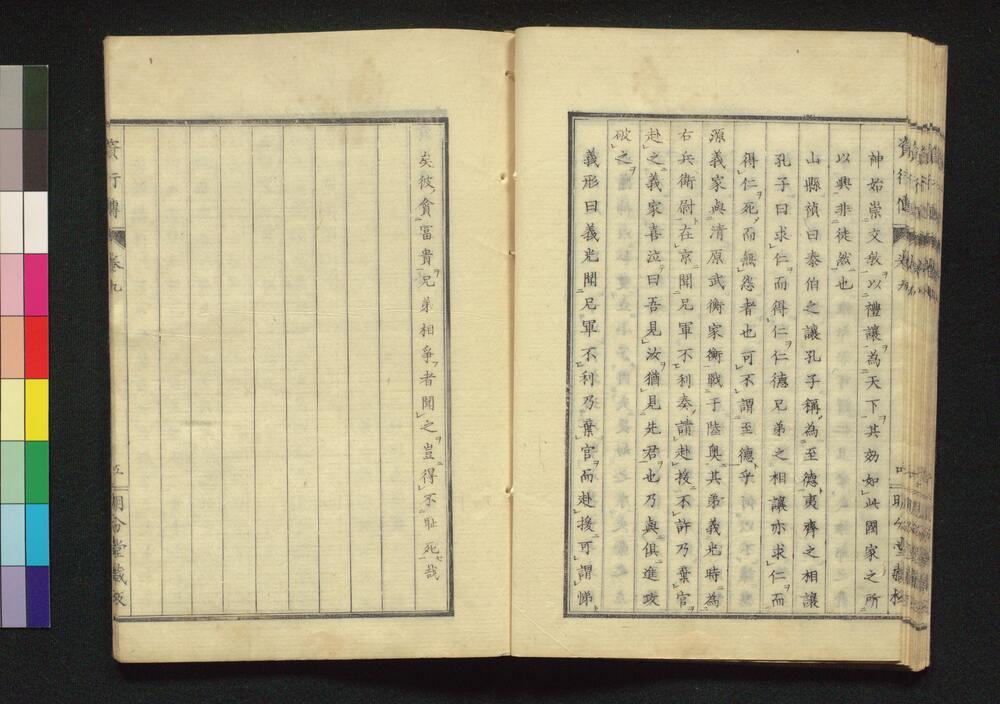 神始崇文教以禮讓為天下其効如此國家之所
以興非徒然也
山縣禎曰泰伯之讓孔子稱為至德夷齊之相讓
孔子曰求仁而得仁仁德兄弟之相讓亦求仁而
得仁死而無怨者也可不謂至德乎
源義家與清原武衡家衡戰于陸奥其弟義光時為
右兵衛尉在京聞兄軍不利奏請赴援不許乃棄官
赴之義家喜泣曰吾見汝猶見先君也乃與俱進攻
破之
義形曰義光聞兄軍不利乃棄官而赴援可謂悌
矣彼貪冨貴兄弟相爭者聞之豈得不耻死哉
行傳
卷九
五
明倫堂藏版